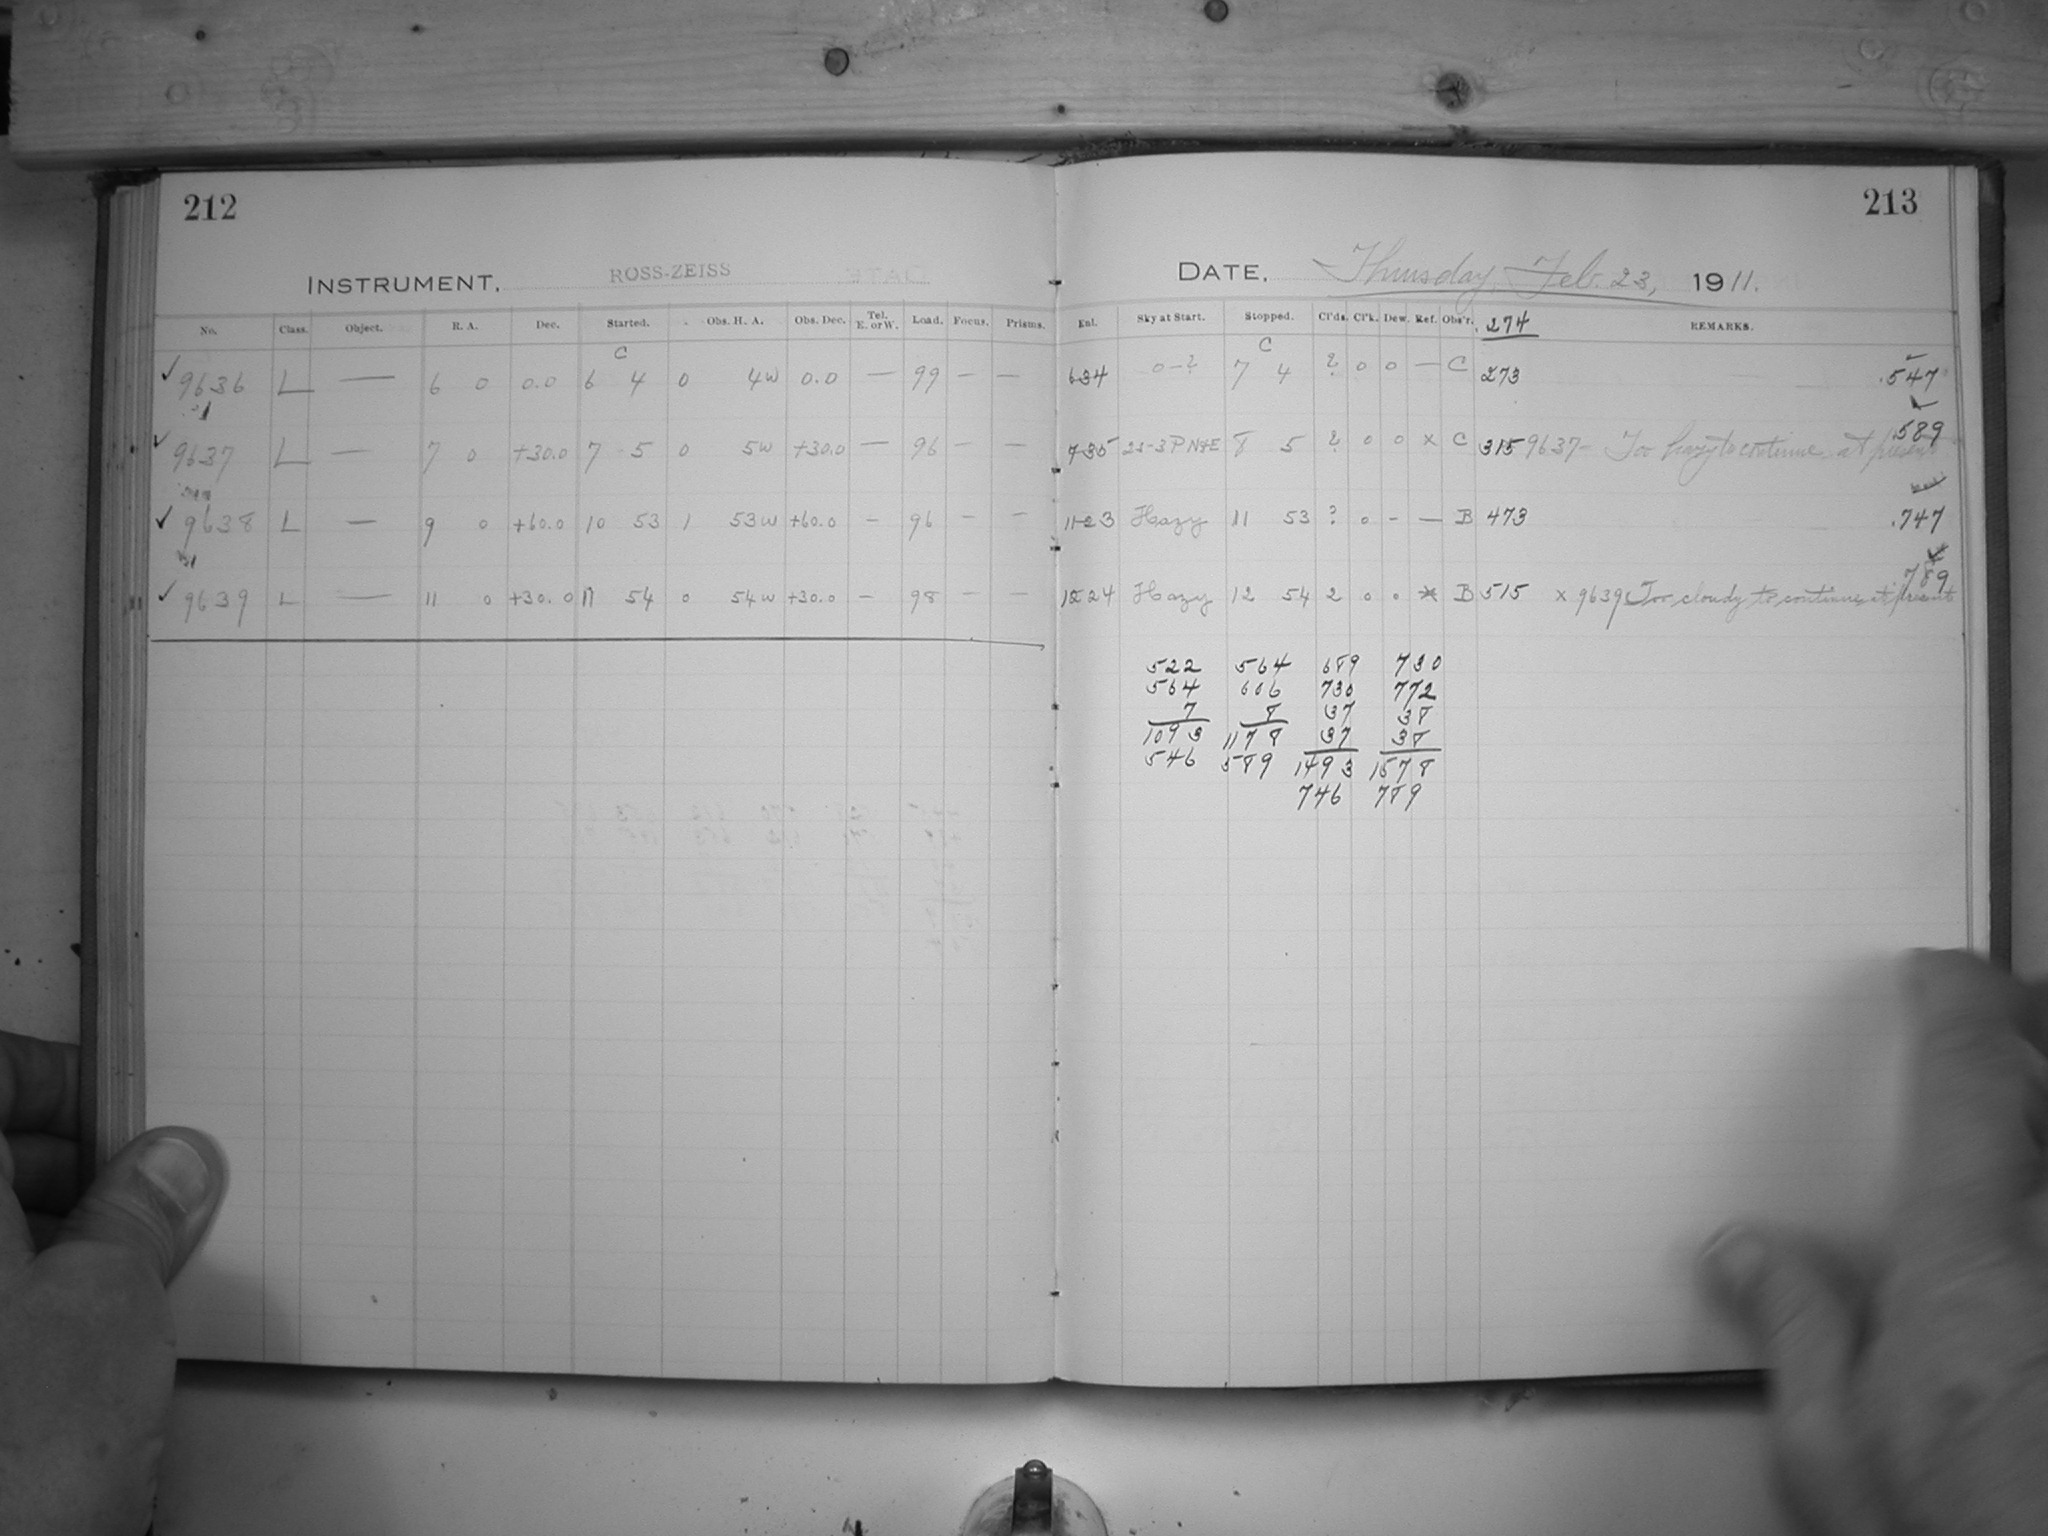 212
213
INSTRUMENT. ROSS-ZEISS
DATE. Thursday, Feb. 23, 1911.
No. Class. Object. R. A. Dec. Started. Obs. H. A. Obs. Dec. Tel. E. or W. Load. Focus. Prisms.
Exl. Sky at Start. Stopped. Cl'ds. Cl'k. Dew. Ref. Obs'r. 274 REMARKS.
C
C
✓ 9636 L — 6 0 0.0 6 4 0 4w 0.0 — 99 — —
634 0-? 7 4 ? 0 0 — C 273 .547
✓ 9637 L — 7 0 +30.0 7 5 0 5w +30.0 — 96 — —
735 23-3P N&E 8 5 ? 0 0 x C 315 9637- Too hazy to continue at present 589
✓ 9638 L — 9 0 +60.0 10 53 1 53w +60.0 - 96 — —
1123 Hazy 11 53 ? 0 - — B 473 .747
✓ 9639 L — 11 0 +30.0 11 54 0 54w +30.0 — 98 — —
1224 Hazy 12 54 2 0 0 x B 515 x 9639 Too cloudy to continue at present 789
522 564 689 730
564 606 730 772
7 8 37 38
1093 1178 37 38
546 589 1493 1578
746 789